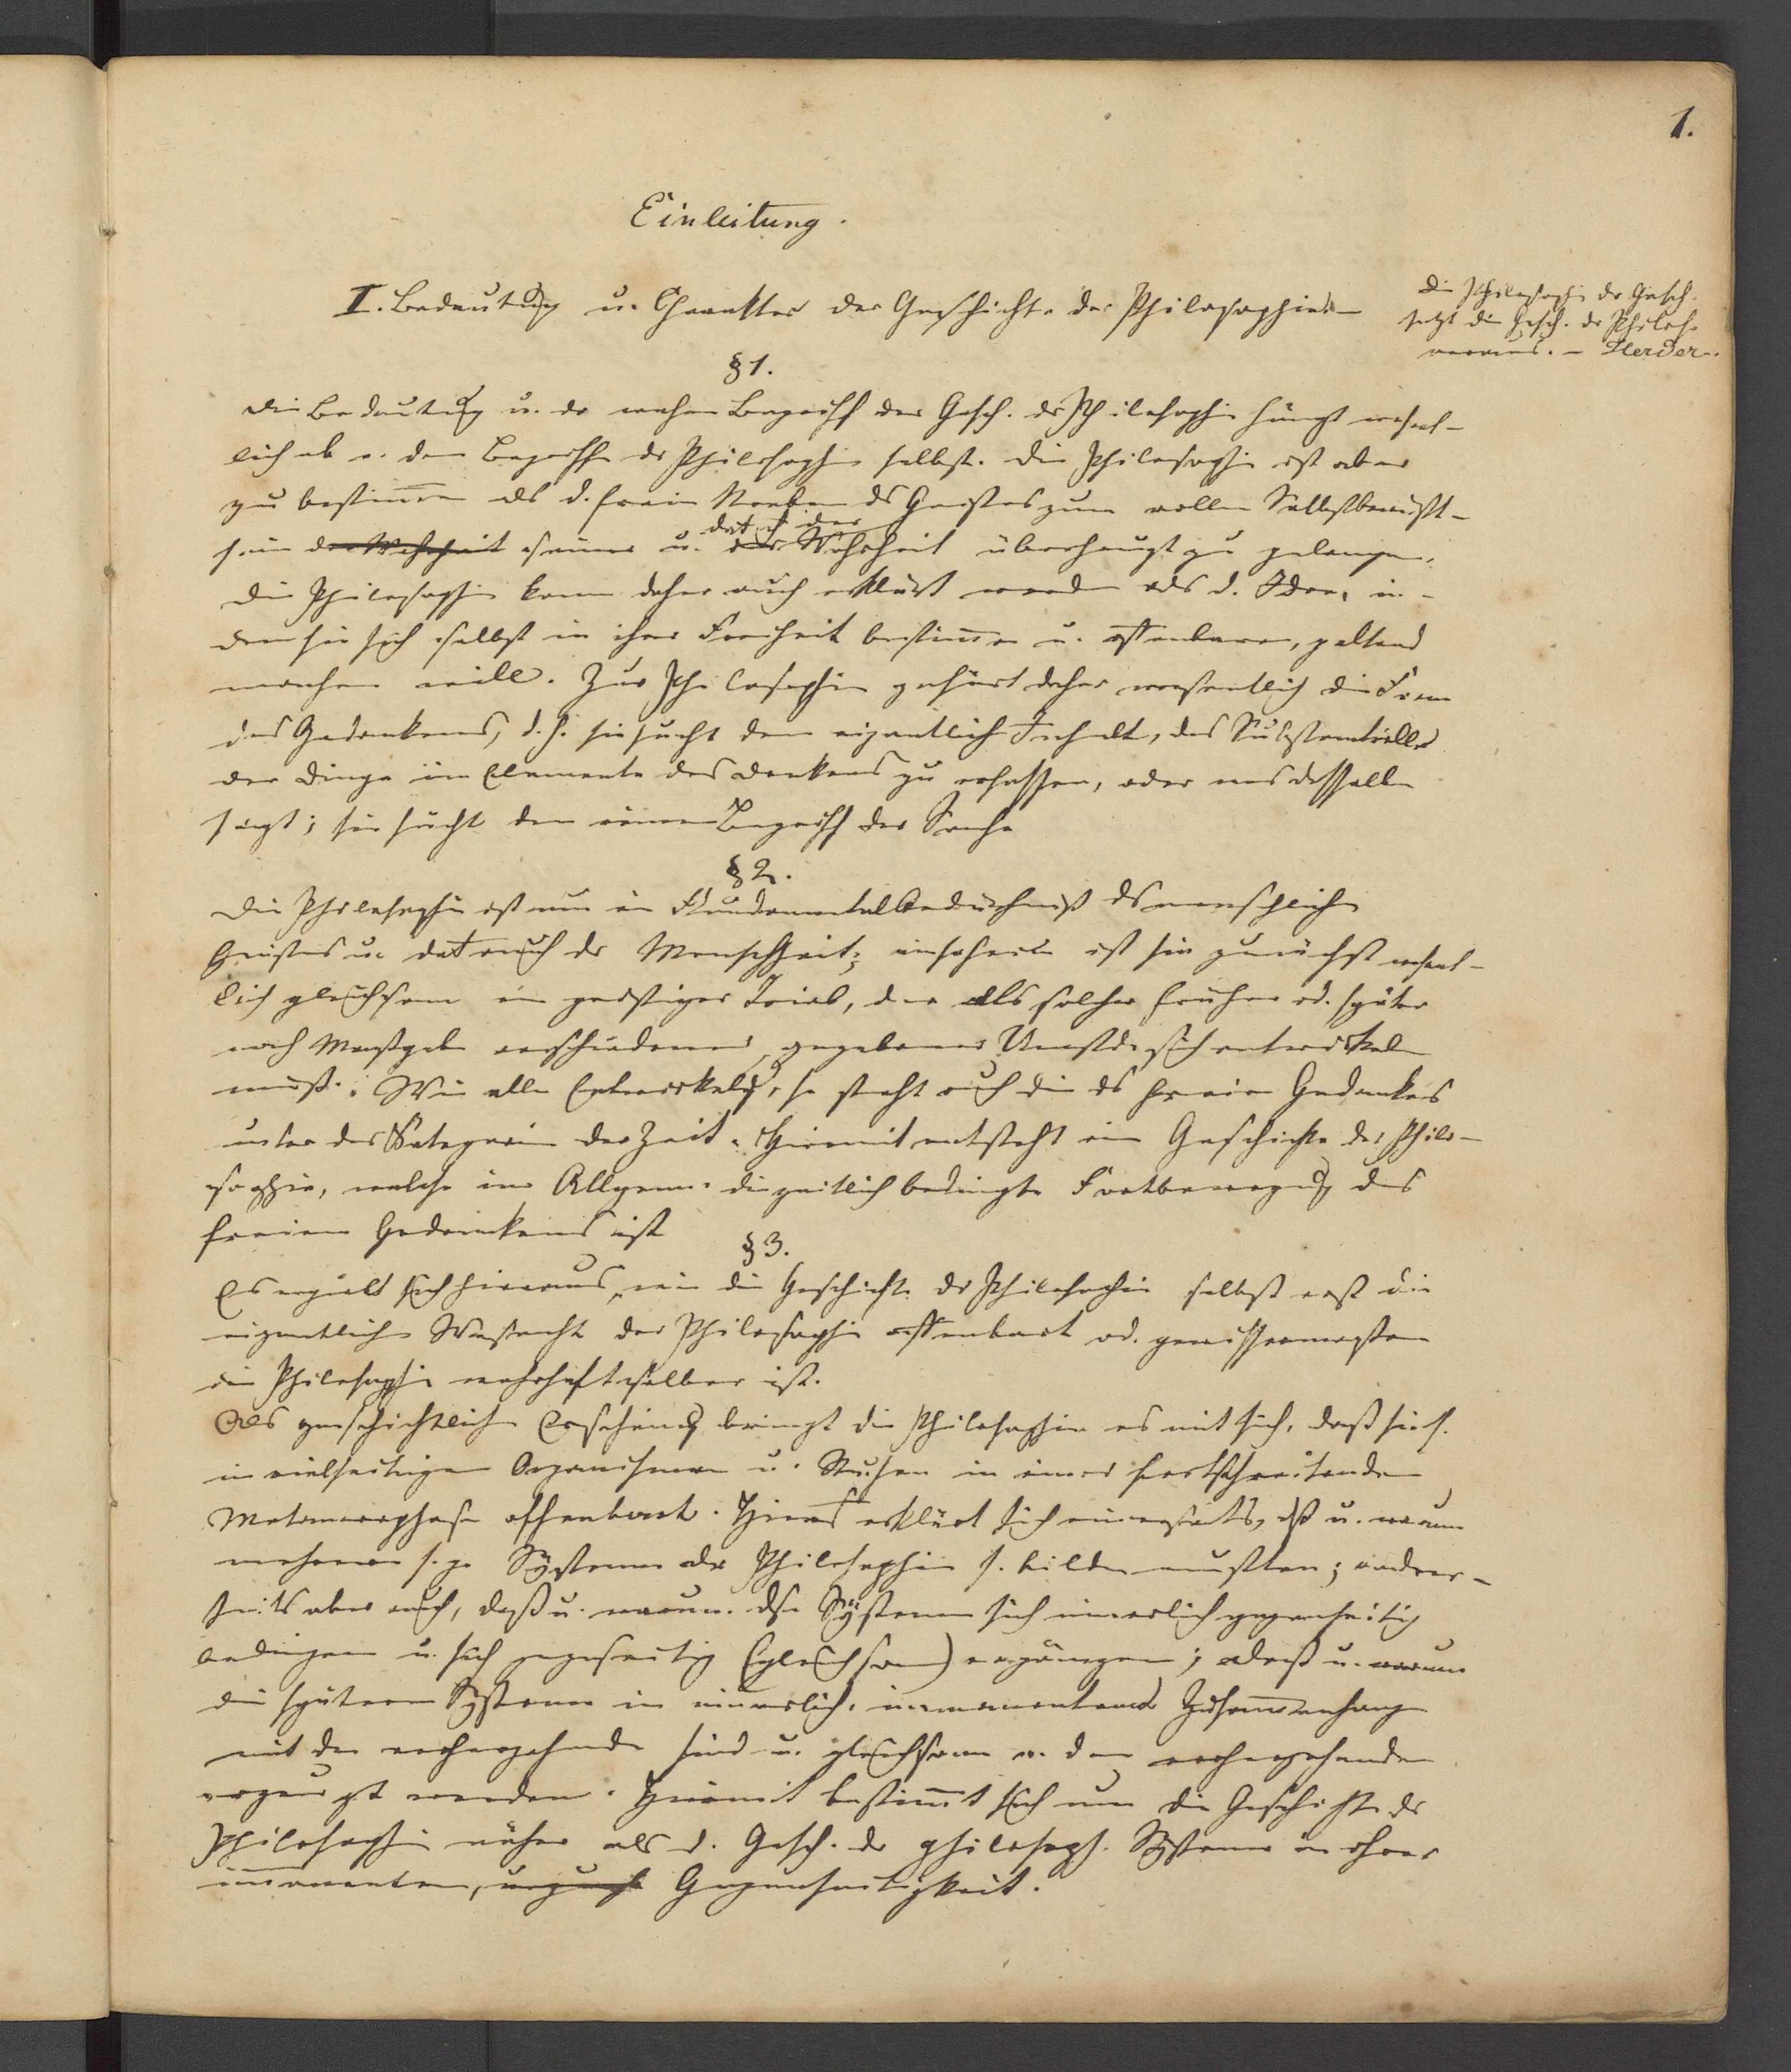 1.
Einleitung.
I. Bedeutung u. Charakter der Geschichte der Philosophie. –
Die Philosophie der Gesch.
setzt die Gesch. der Philos.
voraus. – Herder.
§ 1.
Die Bedeutung u. der wahre Begriff der Gesch. der Philosophie hängt wesent-
lich ab v. dem Begriffe der Philosophie selbst. Die Philosophie ist aber
zu bestimmen als d. freie Streben des Geistes zum vollen Selbstbewußt-
sein der Wahrheit seiner u. dadurch der Wahrheit überhaupt zu gelangen.
Die Philosophie kann daher auch erklärt werden als d. Idee, in-
dem sie sich selbst in ihrer Freiheit bestimmen u. offenbaren, geltend
machen will. Zur Philosophie gehört daher wesentlich die Form
des Gedankens, d. h. sie sucht den eigentlich Inhalt, das Substantielle
der Dinge im Elemente des Denkens zu erfassen, oder was dasselbe
sagt; sie sucht den reinen Begriff der Sache
§ 2.
Die Philosophie ist nun ein Fundamentalbedürfniß des menschlichen
Geistes u. dadurch der Menschheit; insofern ist sie zunächst wesent-
lich gleichsam ein geistiger Trieb, der als solcher früher od. später
nach Maßgabe verschiedener, gegebener Umstde. sich entwickeln
muß. Wie alle Entwickelung, so steht auch die des freien Gedankens
unter der Kategorie der Zeit. Hiermit entsteht eine Geschichte der Philo-
sophie, welche im Allgem. die zeitlich bedingte Fortbewegung des
freien Gedankens ist
§ 3.
Es ergiebt sich hieraus, wie die Geschichte der Philosophie selbst erst die
eigentliche Wesenheit der Philosophie offenbart od. gewissermaßen
die Philosophie wahrhaft selber ist.
Als geschichtliche Erscheinung bringt die Philosophie es mit sich, daß sie s.
in vielseitigen Organismen u. Stufen in einer fortschreitenden
Metamorphose offenbart. Hieraus erklärt sich einerseits, daß u. warum
mehrere s. g. Systeme der Philosophie s. bilden mußten; anderer-
seits aber auch, daß u. warum dse Systeme sich innerlich gegenseitig
bedingen u. sich gegenseitig (gleichsam) ergänzen; daß u. warum
die spätern Systeme in innerlich. immanentem Zusammenhang
mit den vorhergehenden sind u. gleichsam v. den vorhergehenden
erzeugt werden. Hiermit bestimmt sich nun die Geschichte der
Philosophie näher als d. Gesch. der philosoph. Systeme in ihrer
immanenten, Gegenseitigkeit.